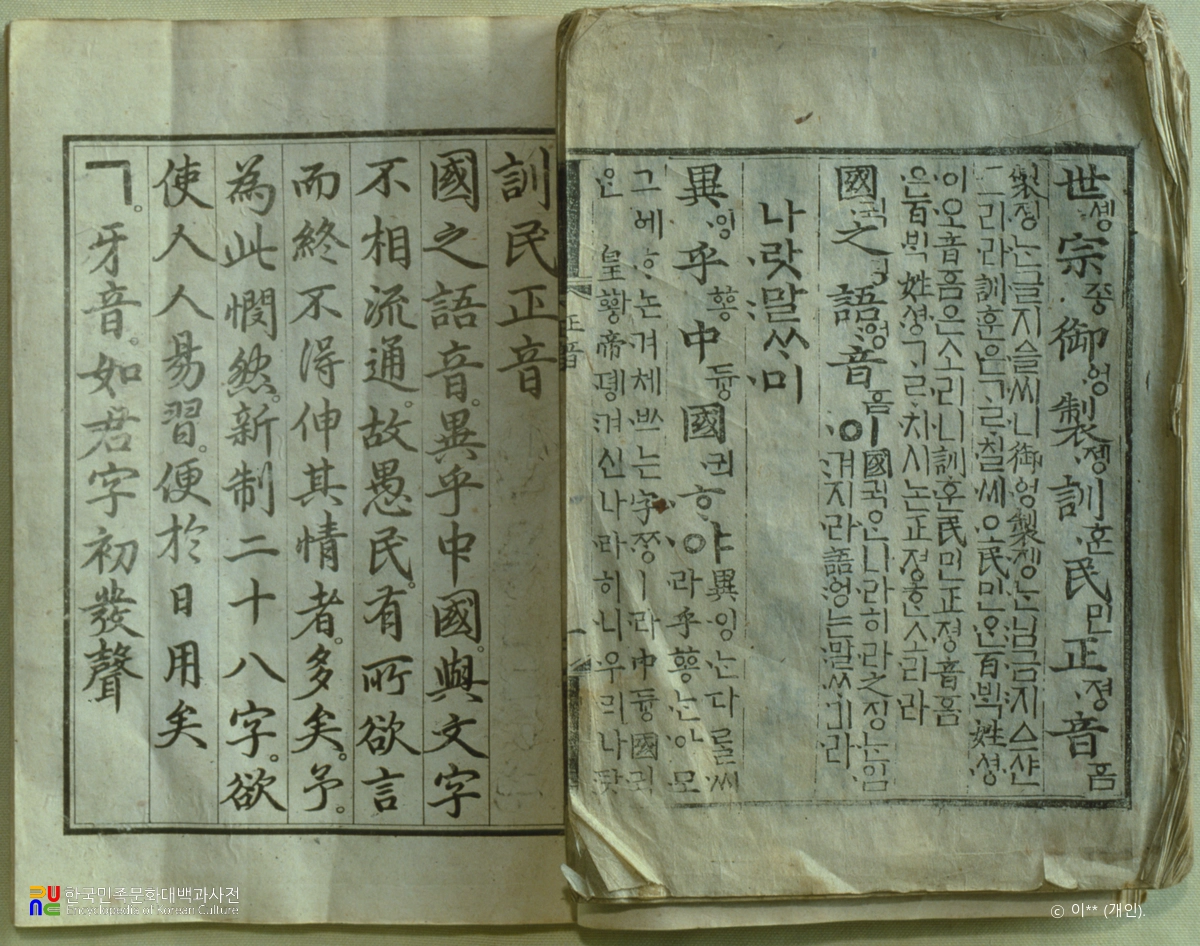 世솅宗종御ᅌᅥᆼ製졩訓훈民민正져ᇰ音ᅙᅳᆷ
製졩ᄂᆞᆫ글지ᅀᅳᆯ씨니御ᅌᅥᆼ製졩ᄂᆞᆫ님금지ᅀᅳ샨
그리라訓훈은ᄀᆞᄅᆞ칠씨오民민ᄋᆞᆫ百ᄇᆡᆨ姓셔ᇰ
이오音ᅙᅳᆷ은소리니訓훈民민正져ᇰ音ᅙᅳᆷ
은百ᄇᆡᆨ姓셔ᇰᄀᆞᄅᆞ치시논正져ᇰᄒᆞᆫ소리라
國귁之징語ᅌᅥᆼ音ᅙᅳᆷ이
國귁ᄋᆞᆫ나라히라之징ᄂᆞᆫ입
겨지라語ᅌᅥᆼ는말ᄊᆞ미라
나랏말ᄊᆞ미
異잉乎ᅘᅩᆼ中듀ᇰ國귁ᄒᆞ야
異잉ᄂᆞᆫ다ᄅᆞᆯ씨
라乎ᅘᅩᆼᄂᆞᆫ아모
그ᅌᅦᄒᆞ논겨체ᄡᅳ는字ᄍᆞᆼㅣ라中듀ᇰ國귁
ᄋᆞᆫ 皇ᅘᅪᇰ帝뎽겨신나라히니우리나랏
正音
一
訓民正音
國之語音。異乎中國。與文字
不相流通。故愚民。有所欲言
而終不得伸其情者。多矣。予。
為此憫然。新制二十八字。欲
使人人易習。便於日用矣
ㄱ。牙音。如君字初發聲
한국민족문화대백과사전
Encyclopedia of Korean Culture
ⓒ 이** (개인).